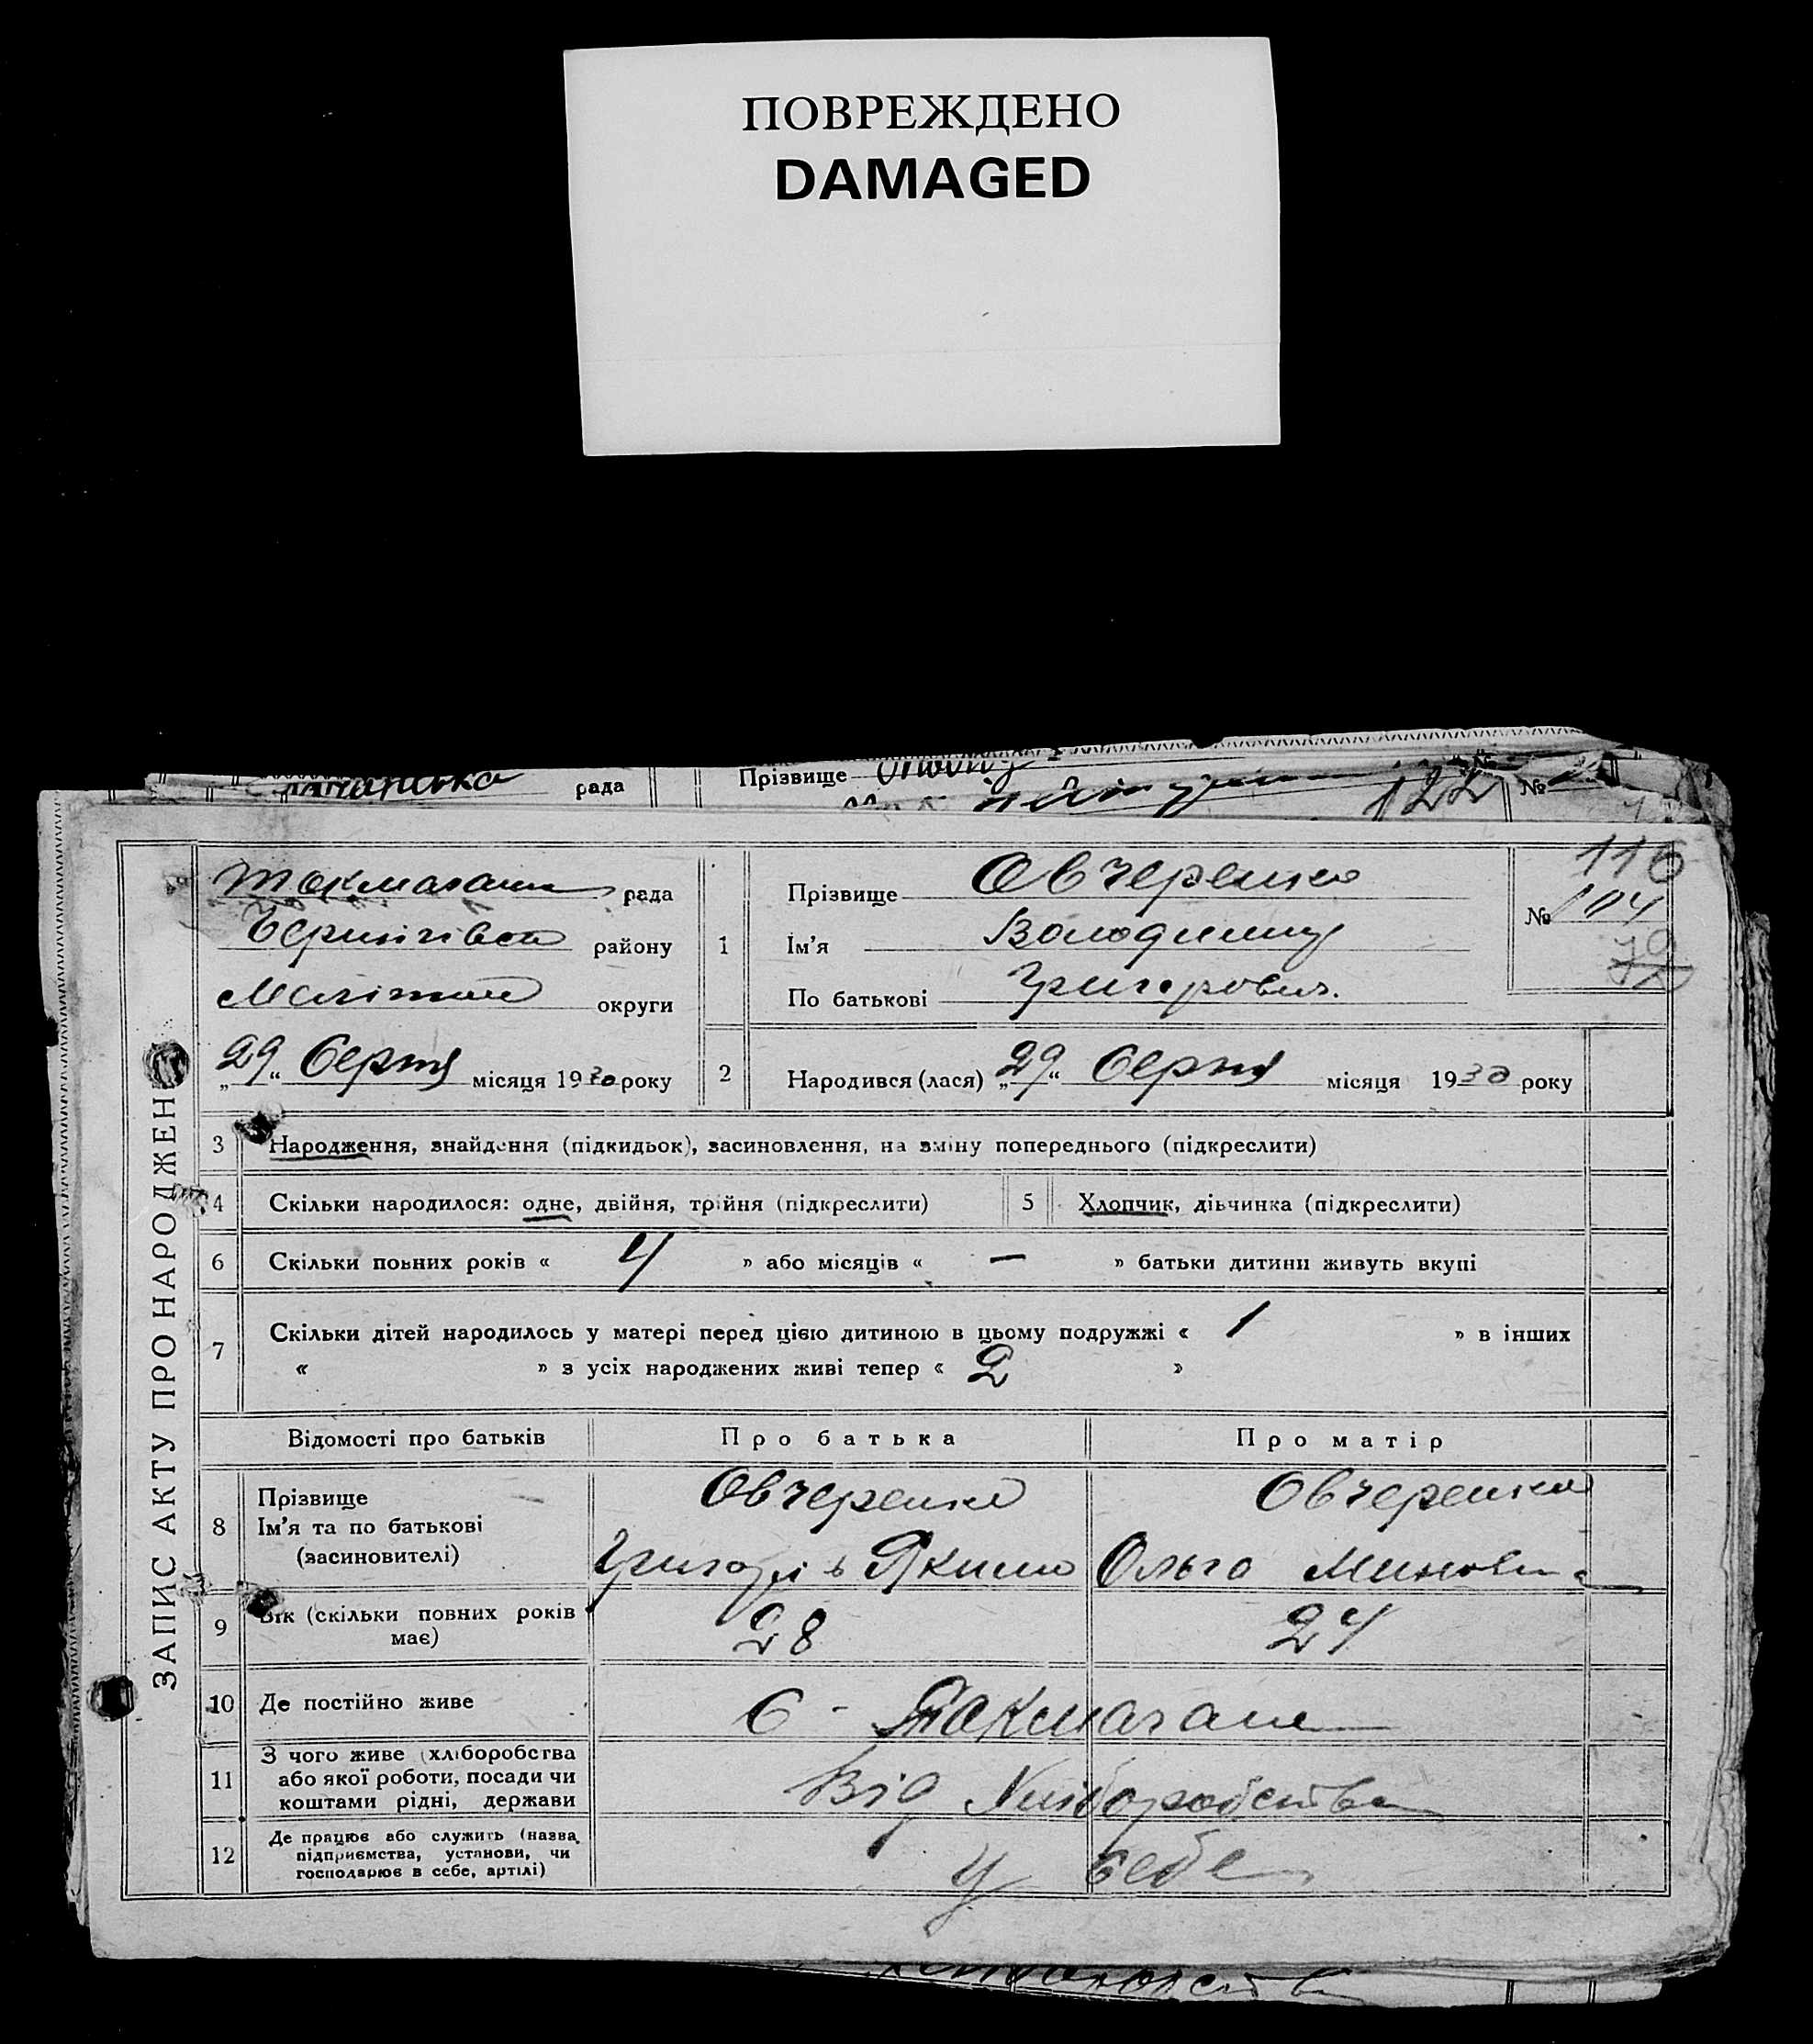 ПОВРЕЖДЕНО
DAMAGED
рада
Прізвище
122
№
116
Токмачани рада
Прізвище Овчеренко
№ 104
Чернігівсь району
1
Ім'я Володимир
79
Меліт округи
По батькові Григорович.
„29" Серпня місяця 1930 року
2
Народився (лася) „29" Серпня місяця 1930 року
3 Народження, знайдення (підкидьок), засиновлення, на зміну попереднього (підкреслити)
4 Скільки народилося: одне, двійня, трійня (підкреслити) 5 Хлопчик, дівчинка (підкреслити)
6 Скільки повних років « 4 » або місяців « — » батьки дитини живуть вкупі
7 Скільки дітей народилось у матері перед цією дитиною в цьому подружжі « 1 » в інших
« » з усіх народжених живі тепер « 2 »
Відомості про батьків Про батька Про матір
8
Прізвище Овчеренко Овчеренко
Ім'я та по батькові
(засиновителі) Григорій Яким Ольга
9 Вік (скільки повних років
має) 28 24
10 Де постійно живе С - Токмачани
11
З чого живе (хліборобства
або якої роботи, посади чи
коштами рідні, держави Від хліборобства
12
Де працює або служить (назва
підприємства, установи, чи
господарює в себе, артілі) У себе
ЗАПИС АКТУ ПРО НАРОДЖЕН